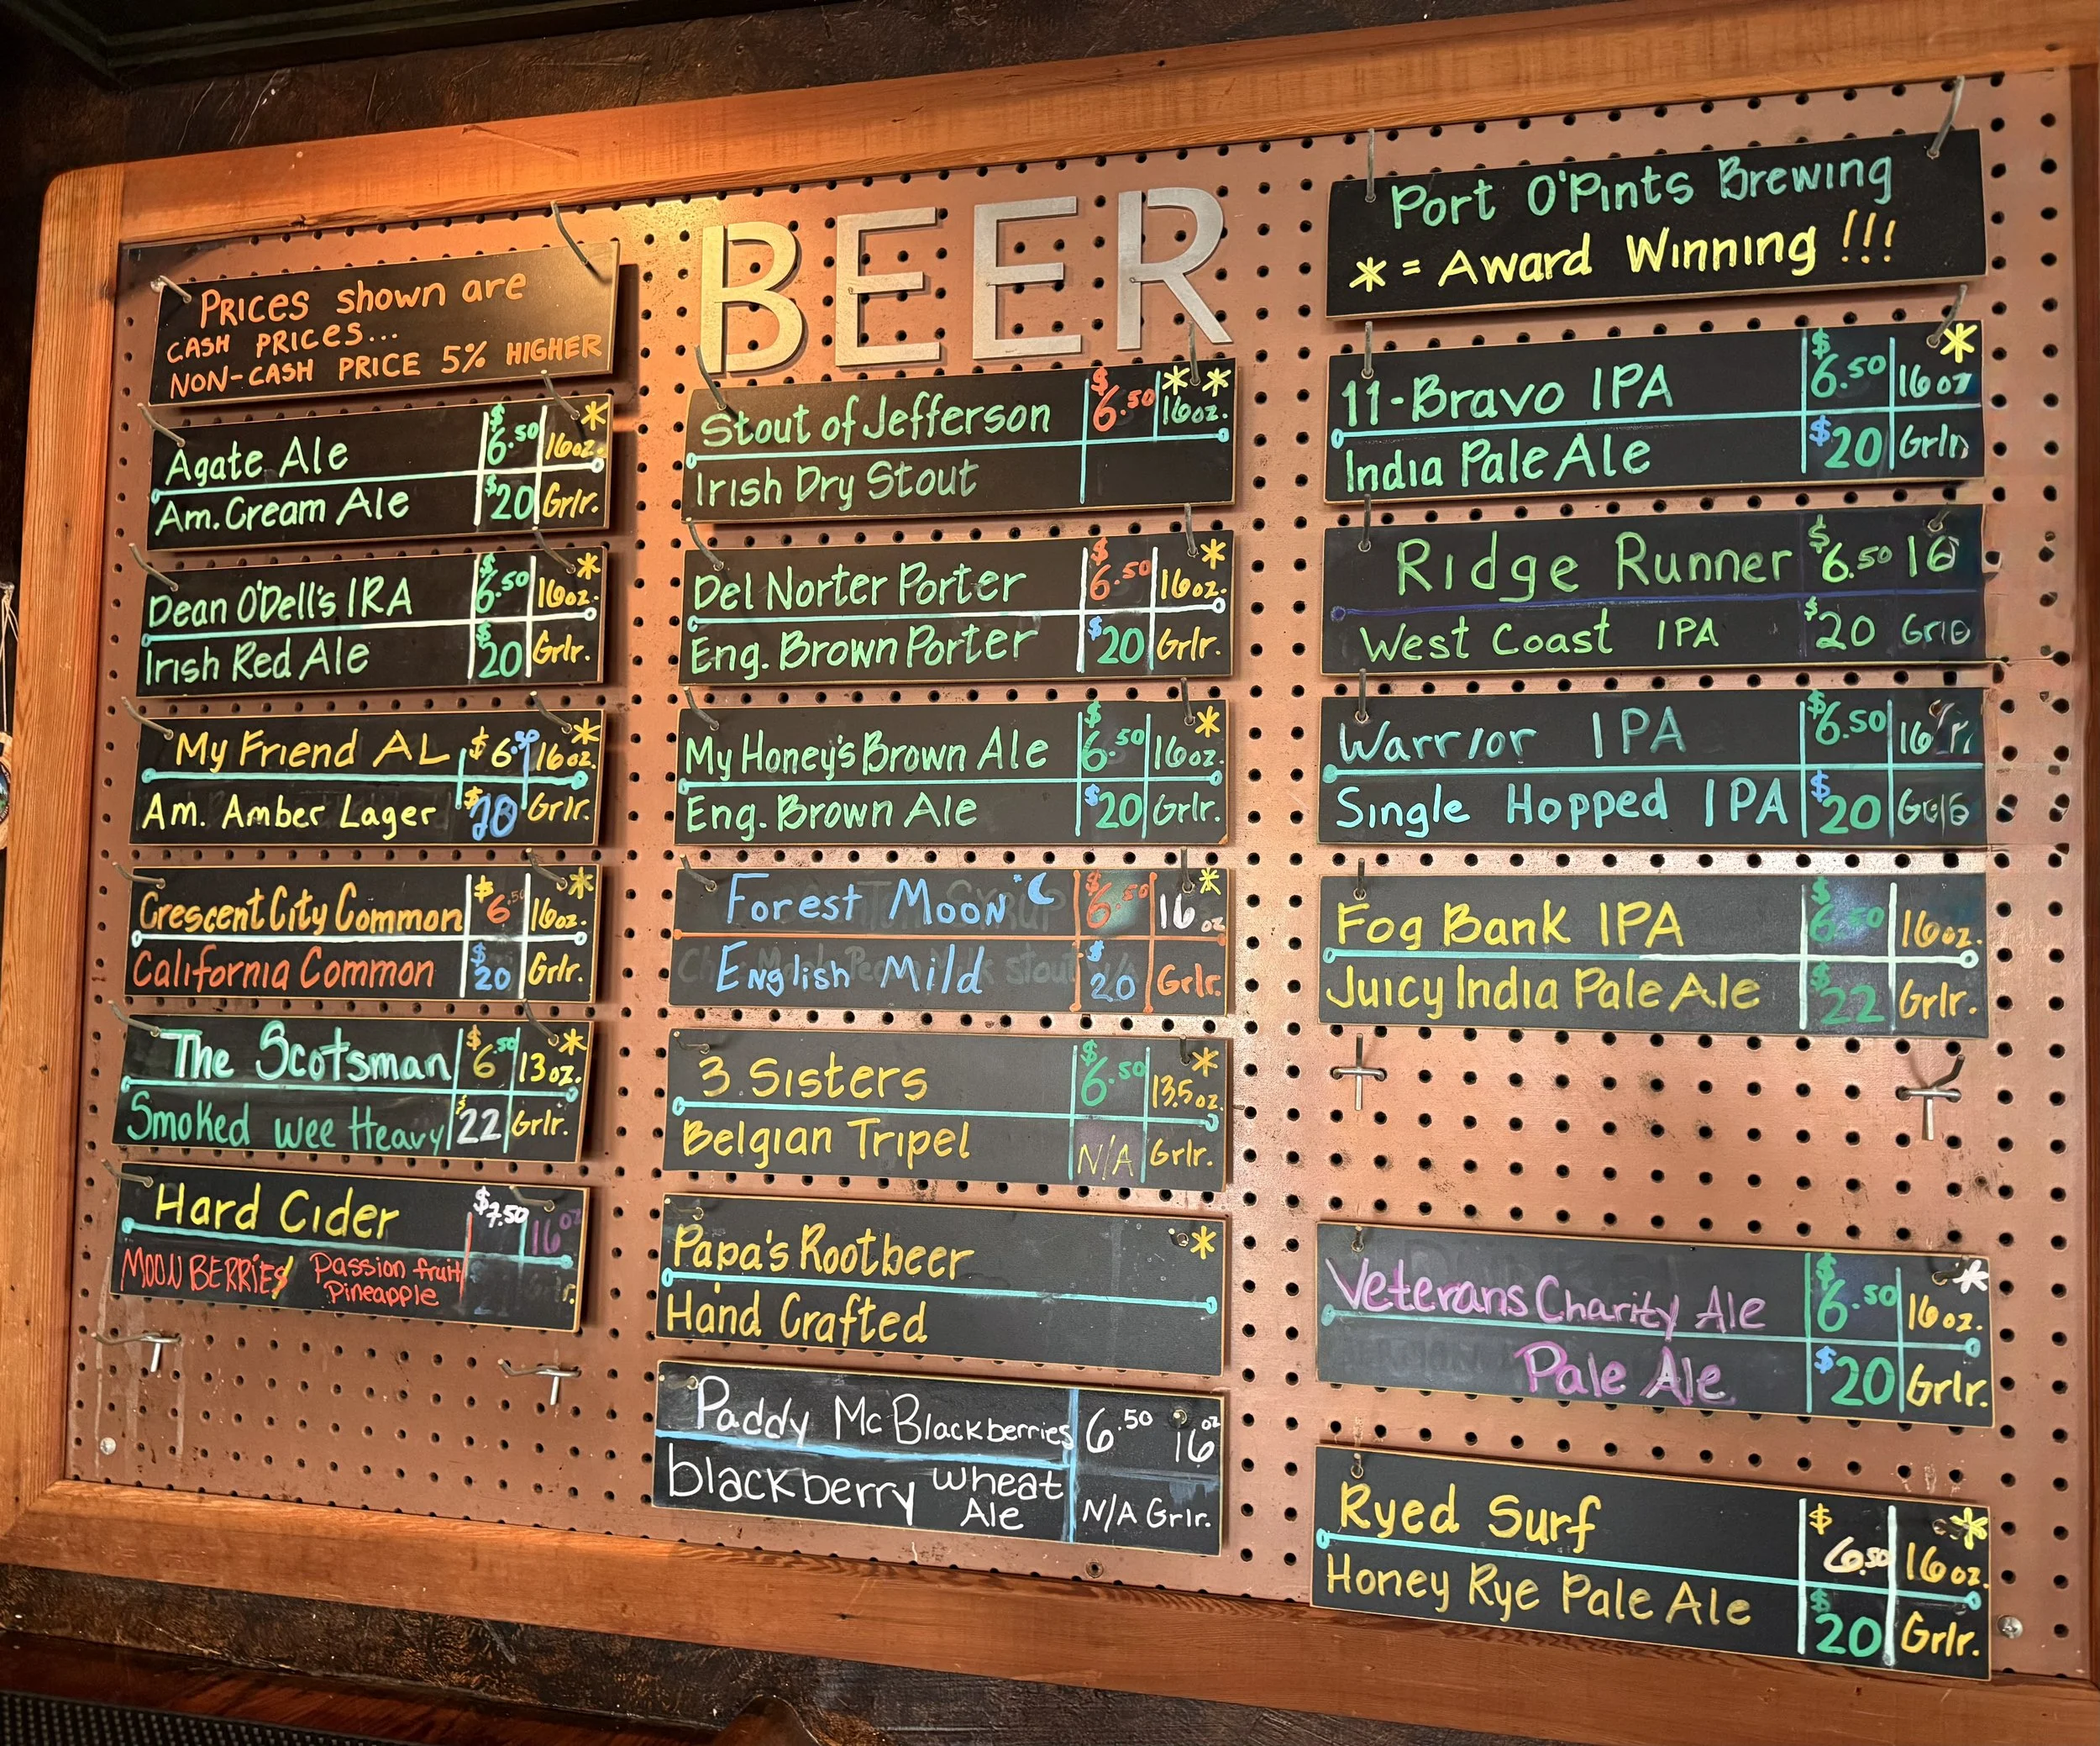 Prices shown are
CASH PRICES...
NON-CASH PRICE 5% HIGHER
Agate Ale $6.50 16oz. *
Am. Cream Ale $20 Grlr.
Dean O'Dell's IRA $6.50 16oz. *
Irish Red Ale $20 Grlr.
My Friend AL $6.50 16oz. *
Am. Amber Lager $20 Grlr.
Crescent City Common $6.50 16oz. *
California Common $20 Grlr.
The Scotsman $6.50 13oz. *
Smoked wee Heavy $22 Grlr.
Hard Cider $7.50 16oz
MOONBERRIES/ Passion fruit
Pineapple
BEER
Stout of Jefferson $6.50 16oz. * *
Irish Dry Stout
Del Norter Porter $6.50 16oz. *
Eng. Brown Porter $20 Grlr.
My Honey's Brown Ale $6.50 16oz. *
Eng. Brown Ale $20 Grlr.
Forest Moon $6.50 16oz *
English Mild $20 Grlr.
3 Sisters $6.50 13.5oz. *
Belgian Tripel N/A Grlr.
Papa's Rootbeer *
Hand Crafted
Paddy McBlackberries 6.50 16oz
blackberry wheat
Ale N/A Grlr.
Port O'Pints Brewing
* = Award Winning !!!
11-Bravo IPA $6.50 16oz *
India Pale Ale $20 Grlr
Ridge Runner $6.50 16
West Coast IPA $20
Warrior IPA $6.50 16
Single Hopped IPA $20
Fog Bank IPA $6.50 16oz.
Juicy India Pale Ale $22 Grlr.
Veterans Charity Ale $6.50 16oz. *
Pale Ale $20 Grlr.
Ryed Surf $6.50 16oz. *
Honey Rye Pale Ale $20 Grlr.